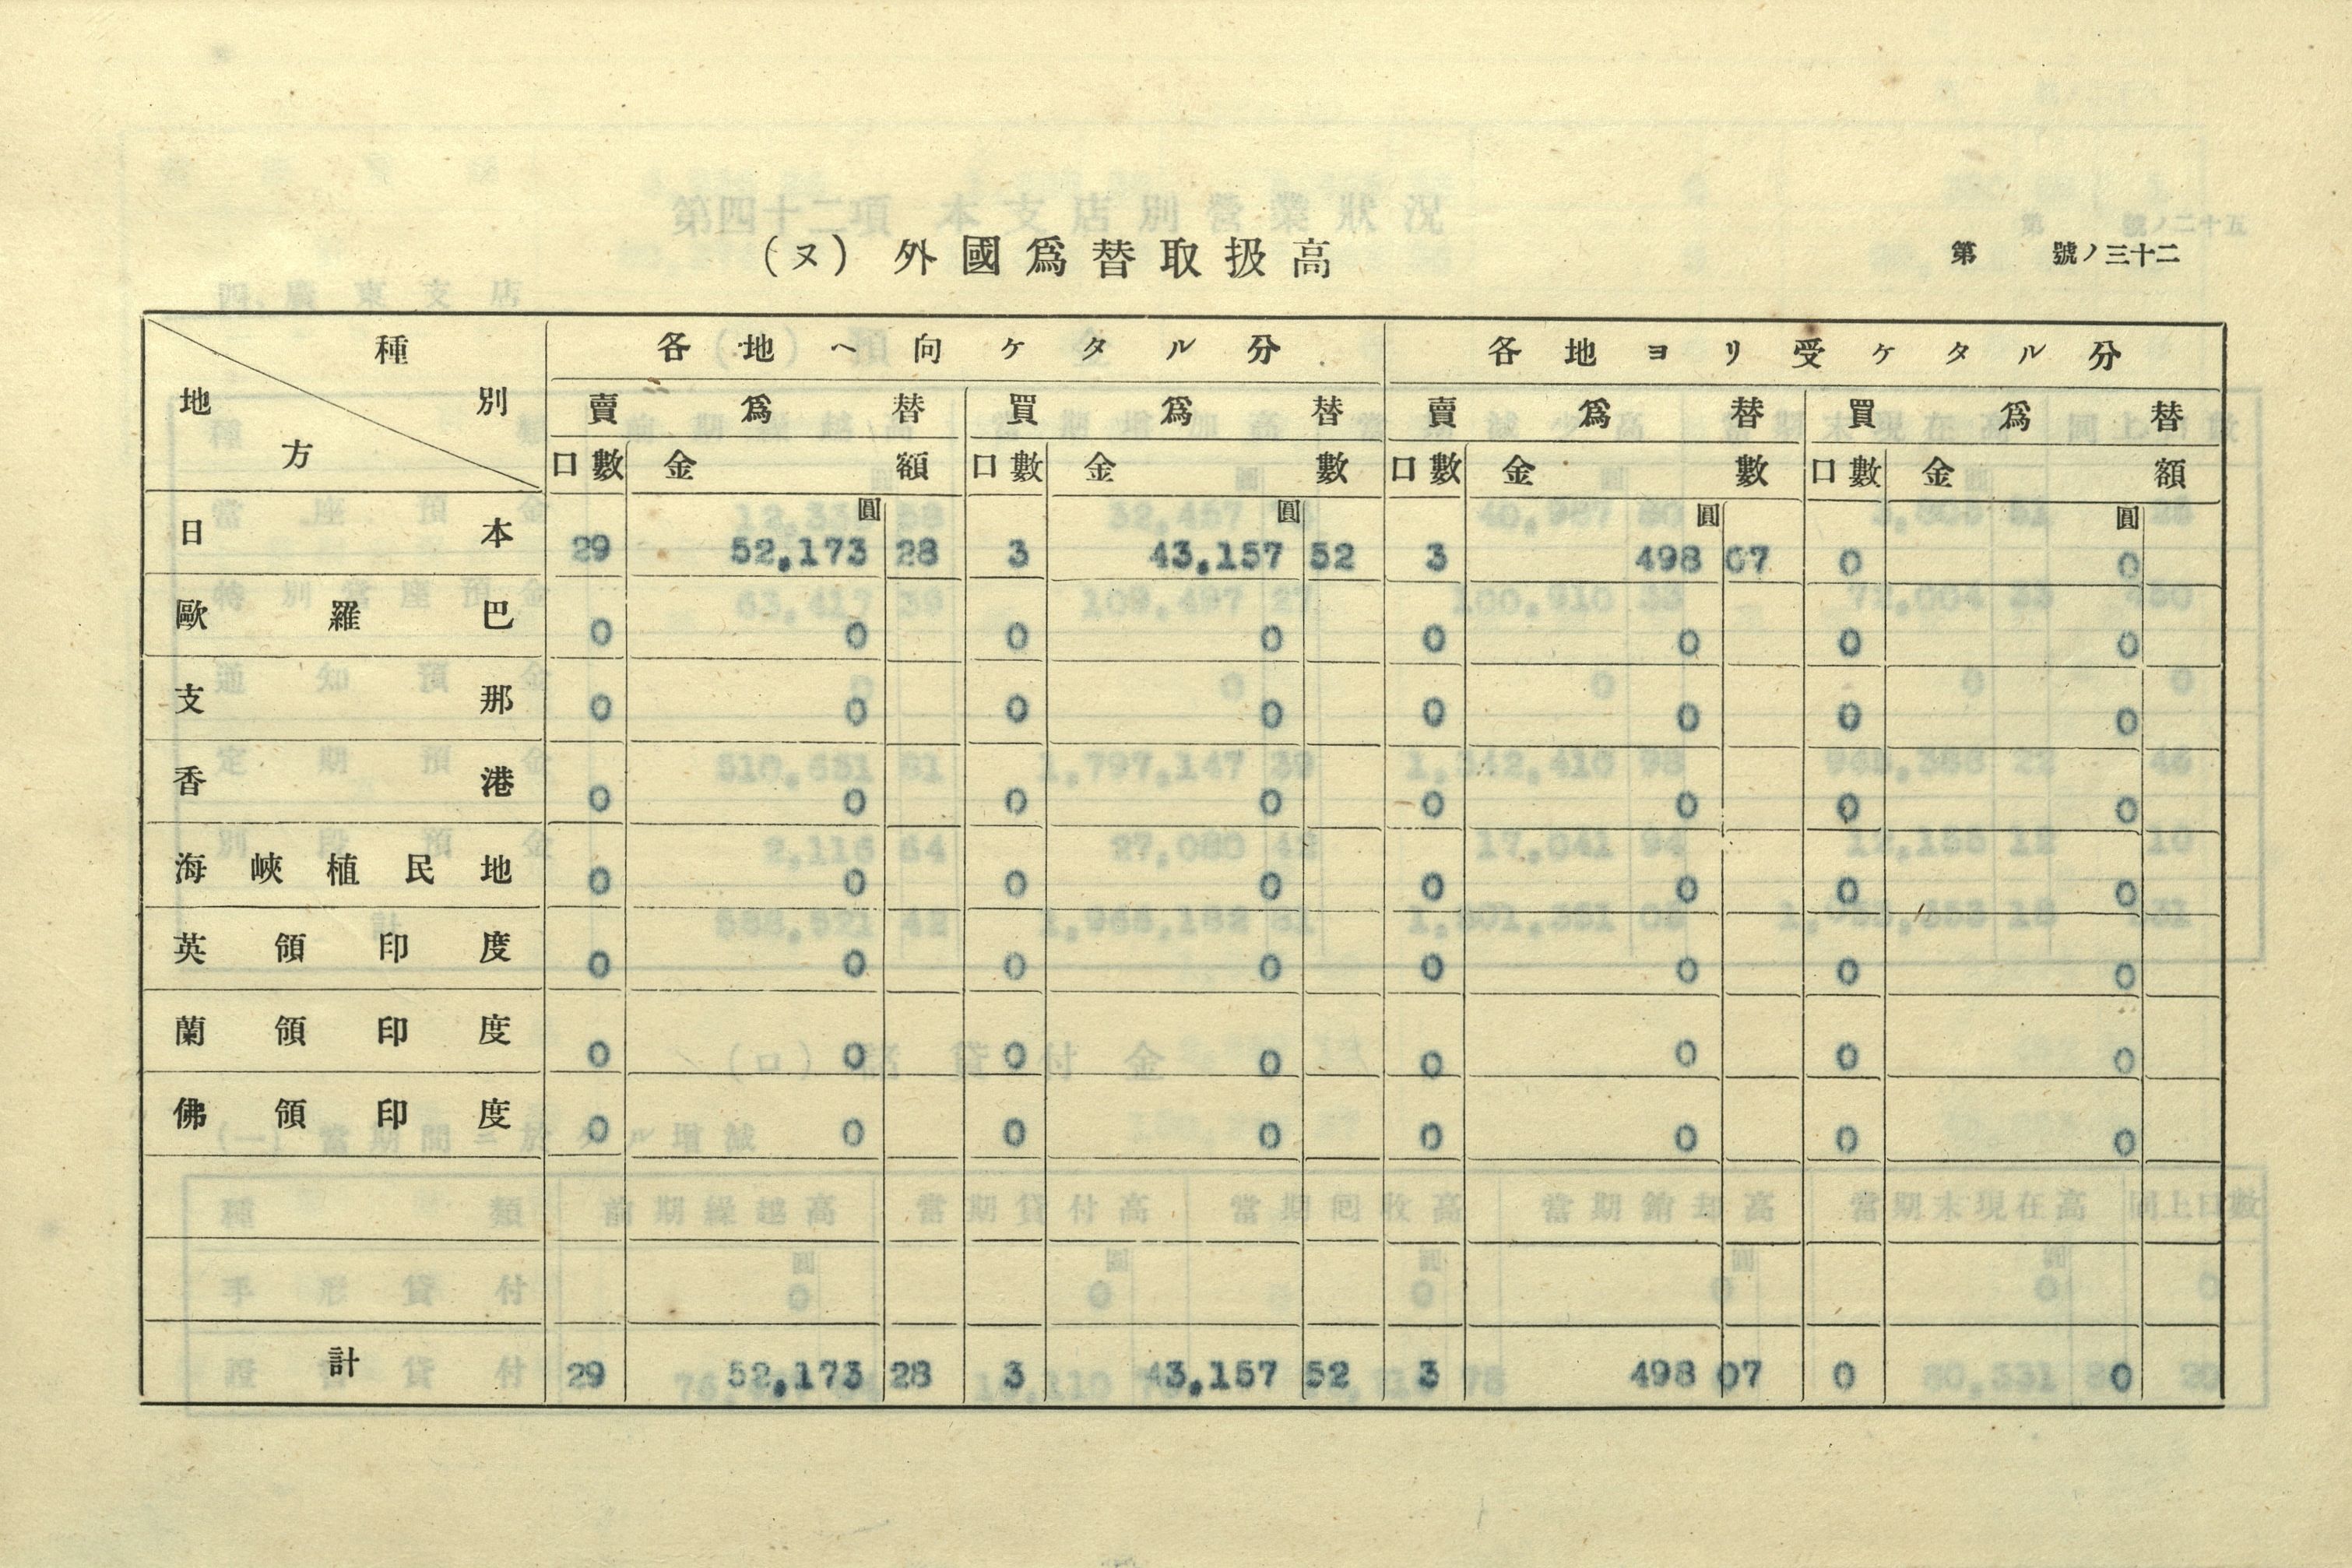 (ヌ) 外國爲替取扱高
第 號ノ三十二
種別 地方 各地ヘ向ケタル分 各地ヨリ受ケタル分
賣爲替 買爲替 賣爲替 買爲替
口數 金額 口數 金數 口數 金數 口數 金額
圓 圓 圓 圓
日本 29 52,173 28 3 43,157 52 3 498 07 0 0
歐羅巴 0 0 0 0 0 0 0 0
支那 0 0 0 0 0 0 0 0
香港 0 0 0 0 0 0 0 0
海峽植民地 0 0 0 0 0 0 0 0
英領印度 0 0 0 0 0 0 0 0
蘭領印度 0 0 0 0 0 0 0 0
佛領印度 0 0 0 0 0 0 0 0
計 29 52,173 28 3 43,157 52 3 498 07 0 0